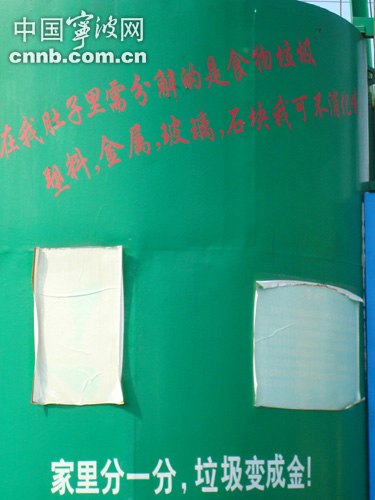 中国宁波网
cnnb.com.cn
在我肚子里需分解的是食物垃圾
塑料,金属,玻璃,石块我可不消化
家里分一分,垃圾变成金!